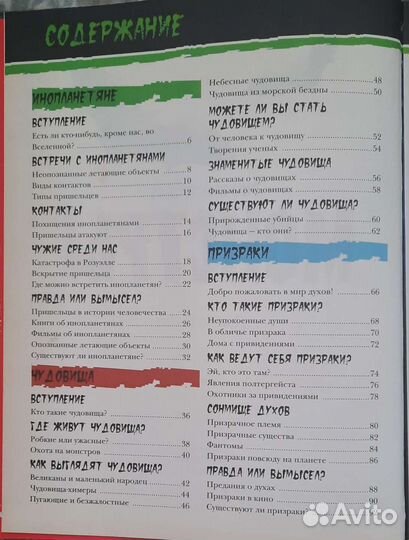 СОДЕРЖАНИЕ
ИНОПЛАНЕТЯНЕ
ВСТУПЛЕНИЕ
Есть ли кто-нибудь, кроме нас, во
Вселенной? 6
ВСТРЕЧИ С ИНОПЛАНЕТЯНАМИ
Неопознанные летающие объекты 8
Виды контактов 10
Типы пришельцев 12
КОНТАКТЫ
Похищения инопланетянами 14
Пришельцы атакуют 16
ЧУЖИЕ СРЕДИ НАС
Катастрофа в Розуэлле 18
Вскрытие пришельца 20
Где можно встретить инопланетян? 22
ПРАВДА ИЛИ ВЫМЫСЕЛ?
Пришельцы в истории человечества 24
Книги об инопланетянах 26
Фильмы об инопланетянах 28
Опознанные летающие объекты 30
Существуют ли инопланетяне? 32
ЧУДОВИЩА
ВСТУПЛЕНИЕ
Кто такие чудовища? 36
ГДЕ ЖИВУТ ЧУДОВИЩА?
Робкие или ужасные? 38
Охота на монстров 40
КАК ВЫГЛЯДЯТ ЧУДОВИЩА?
Великаны и маленький народец 42
Чудовища-химеры 44
Пугающие и безжалостные 46
Небесные чудовища 48
Чудовища из морской бездны 50
МОЖЕТЕ ЛИ ВЫ СТАТЬ
ЧУДОВИЩЕМ?
От человека к чудовищу 52
Творения ученых 54
ЗНАМЕНИТЫЕ ЧУДОВИЩА
Рассказы о чудовищах 56
Фильмы о чудовищах 58
СУЩЕСТВУЮТ ЛИ ЧУДОВИЩА?
Прирожденные убийцы 60
Чудовища — кто они? 62
ПРИЗРАКИ
ВСТУПЛЕНИЕ
Добро пожаловать в мир духов! 66
КТО ТАКИЕ ПРИЗРАКИ?
Неупокоенные души 68
В обличье призрака 70
Дома с привидениями 72
КАК ВЕДУТ СЕБЯ ПРИЗРАКИ?
Эй, кто это там? 74
Явления полтергейста 76
Охотники за привидениями 78
СОНМИЩЕ ДУХОВ
Призрачное племя 80
Призрачные существа 82
Фантомы 84
Призраки повсюду на планете 86
ПРАВДА ИЛИ ВЫМЫСЕЛ?
Предания о духах 88
Призраки в кино 90
Существуют ли призраки? 92
Avito